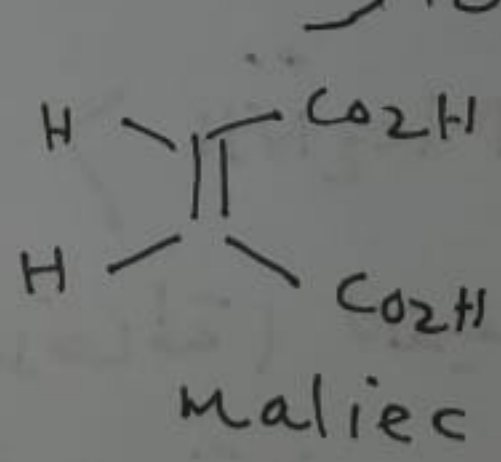 H CO2H
H CO2H
Maliec